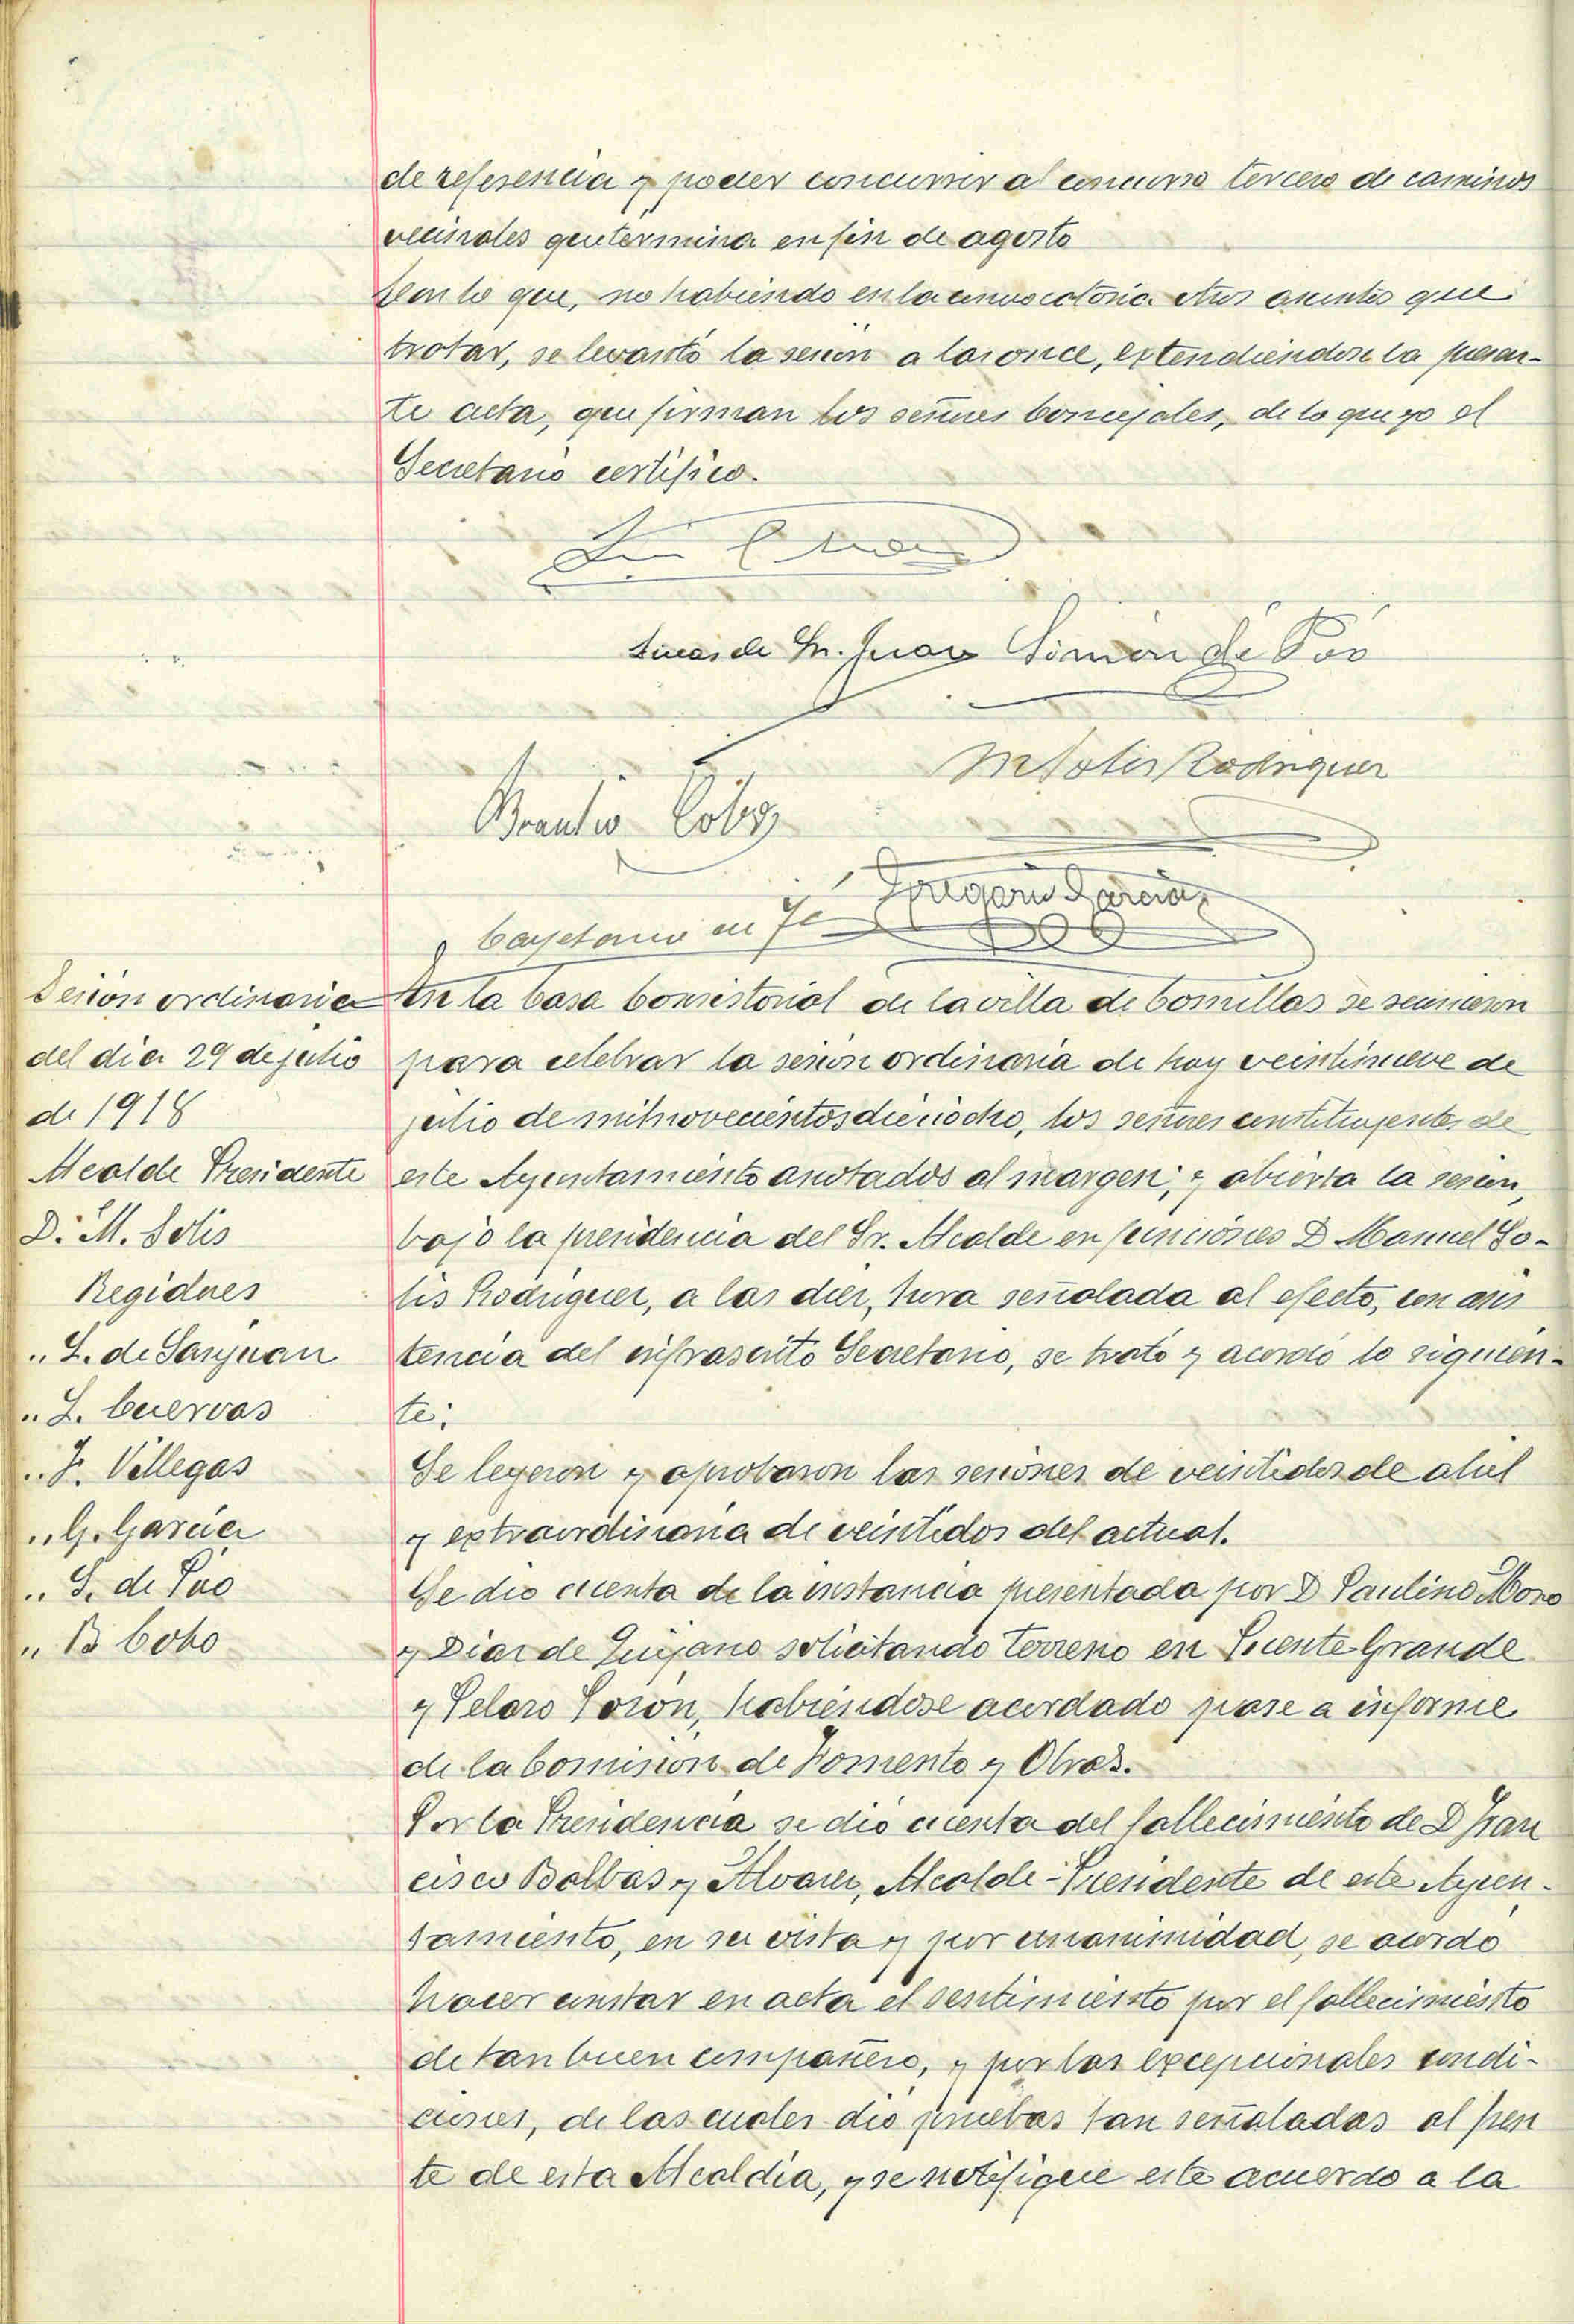 de referencia y poder concurrir al concurso tercero de caminos
vecinales que termina en fin de agosto
Con lo que, no habiendo en la convocatoria otros asuntos que
tratar, se levantó la sesión a las once, extendiéndose la presen-
te acta, que firman los señores Concejales, de lo que yo el
Secretario certifico.
Lucas de Sn. Juan Simón de Póo
M Solis Rodriguez
Braulio Cobo
Gregorio Garcia
Cayetano
Sesión ordinaria
del dia 29 de julio
de 1918
Alcalde Presidente
D. M. Solis
Regidores
" L. de Sanjuan
" L. Cuervas
" F. Villegas
" G. Garcia
" S. de Póo
" B Cobo
En la Casa Consistorial de la villa de Comillas se reunieron
para celebrar la sesión ordinaria de hoy veintinueve de
julio de mil novecientos dieciocho, los señores constituyentes de
este Ayuntamiento anotados al margen; y abierta la sesion,
bajo la presidencia del Sr. Alcalde en funciones D Manuel So-
lis Rodriguez, a las diez, hora señalada al efecto, con asis
tencia del infrascrito Secretario, se trató y acordó lo siguien-
te:
Se leyeron y aprobaron las sesiones de veintidos de abril
y extraordinaria de veintidos del actual.
Se dio cuenta de la instancia presentada por D Paulino Moro
y Diaz de Quijano solicitando terreno en Fuente Grande
y habiéndose acordado pase a informe
de la Comisión de Fomento y Obras.
Por la Presidencia se dió cuenta del fallecimiento de D Fran
cisco Balbas y Alvarez, Alcalde-Presidente de este Ayun-
tamiento, en su vista y por unanimidad, se acordó
hacer constar en acta el sentimiento por el fallecimiento
de tan buen compañero, y por las excepcionales condi-
ciones, de las cuales dió pruebas tan señaladas al fren
te de esta Alcaldía, y se notifique este acuerdo a la